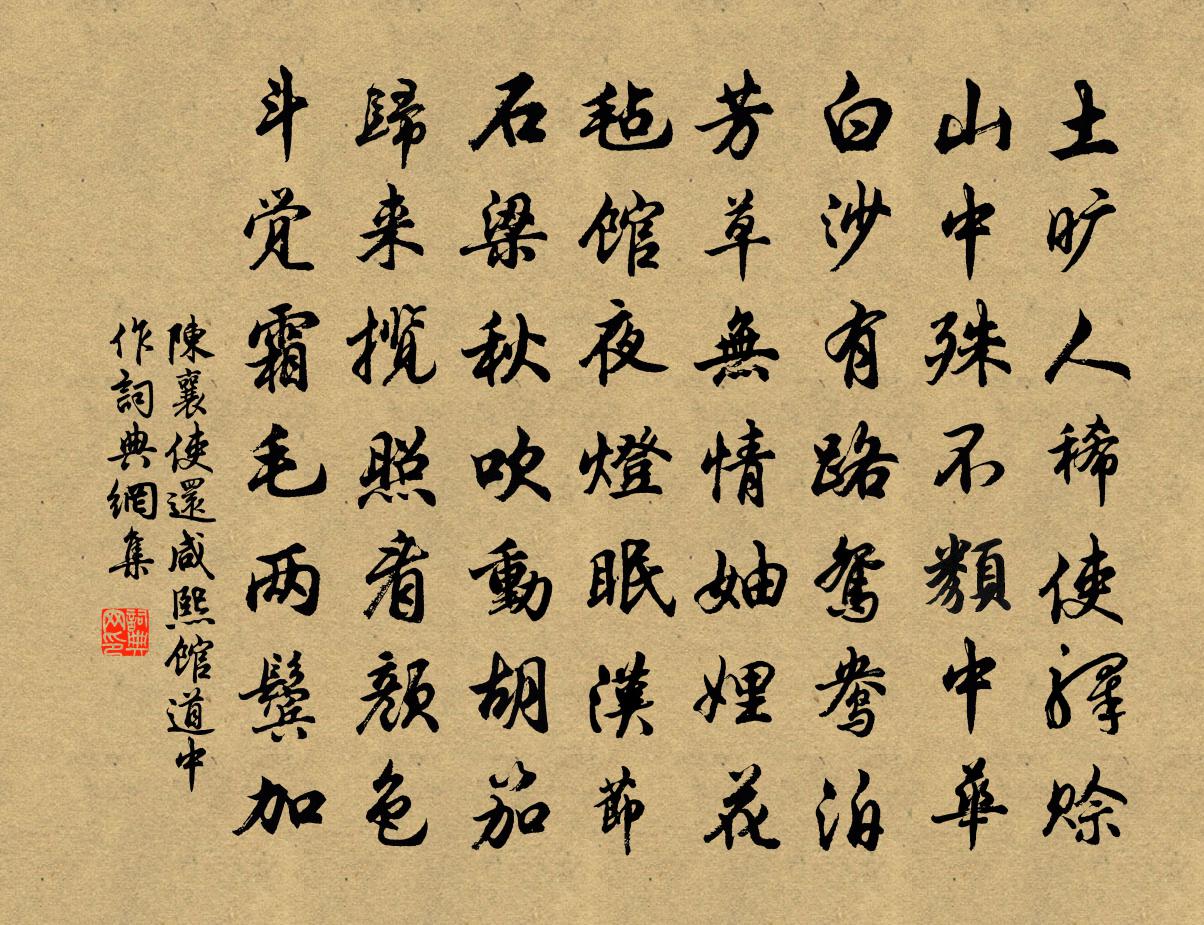 土旷人稀使驿赊
山中殊不類中華
白沙有路鴛鴦泊
芳草無情妯娌花
毡館夜燈眠漢節
石梁秋吹動胡笳
歸来揽照看顏色
斗觉霜毛两鬓加
陳襄使還咸熙館道中
作詞典網集
詞典
网印